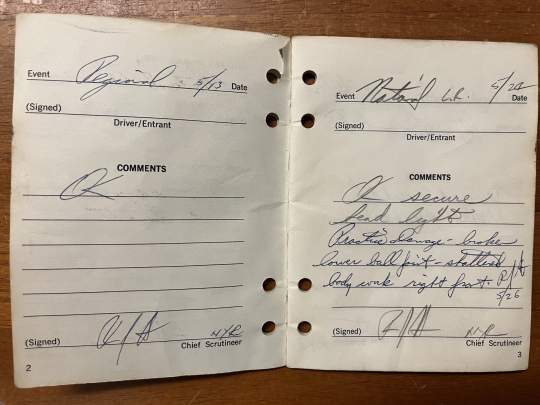 Event Regional 5/13 Date
(Signed)
Driver/Entrant
COMMENTS
OK
(Signed) NYR
Chief Scrutineer
2
Event National L.R. 5/24 Date
(Signed)
Driver/Entrant
COMMENTS
OK secure
head light
Practice Damage - broken
lower ball joint - shattered
body work right front.
5/26
(Signed) NYR
Chief Scrutineer
3